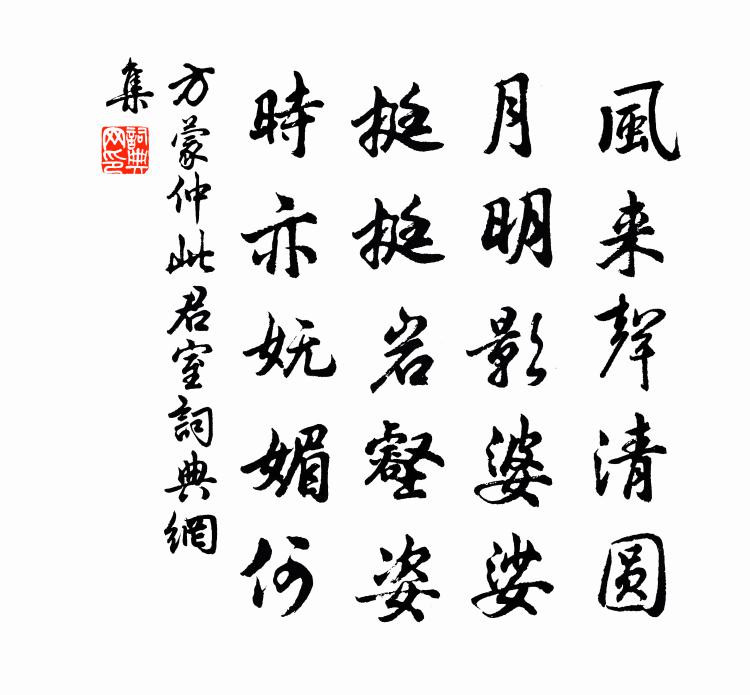 風来聲清圆
月明影婆娑
挺挺岩壑姿
時亦妩媚何
方蒙仲此君室詞典網
集
詞典網印